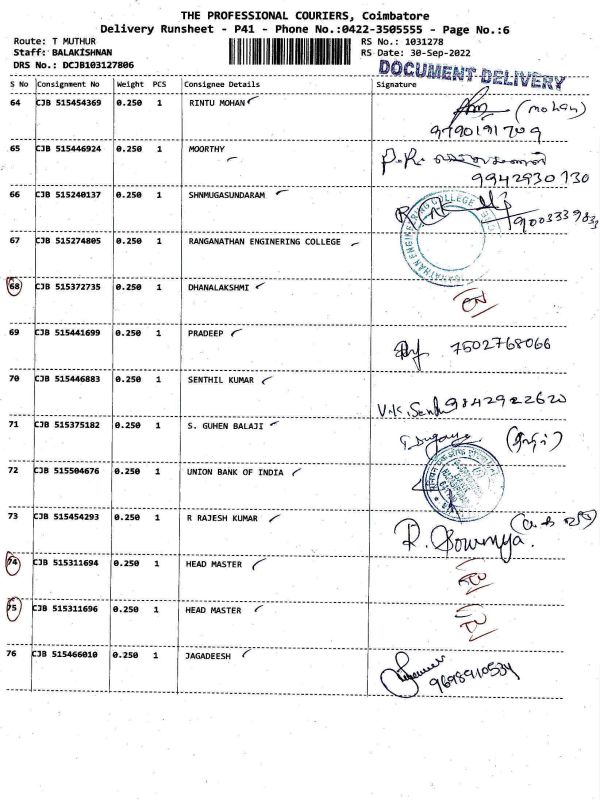 THE PROFESSIONAL COURIERS, Coimbatore
Delivery Runsheet - P41 - Phone No.:0422-3505555 - Page No.:6
Route: T MUTHUR RS No.: 1031278
Staff: BALAKISHNAN RS Date: 30-Sep-2022
DRS No.: DCJB103127806 DOCUMENT DELIVERY
S No Consignment No Weight PCS Consignee Details Signature
64 CJB 515454369 0.250 1 RINTU MOHAN (Mohan)
9790191709
65 CJB 515446924 0.250 1 MOORTHY P.R.
9942930730
66 CJB 515240137 0.250 1 SHNMUGASUNDARAM
67 CJB 515274805 0.250 1 RANGANATHAN ENGINERING COLLEGE ENGINEERING COLLEGE
68 CJB 515372735 0.250 1 DHANALAKSHMI
69 CJB 515441699 0.250 1 PRADEEP 7502768066
70 CJB 515446883 0.250 1 SENTHIL KUMAR
V.K. 9842922620
71 CJB 515375182 0.250 1 S. GUHEN BALAJI
72 CJB 515504676 0.250 1 UNION BANK OF INDIA
73 CJB 515454293 0.250 1 R RAJESH KUMAR R. Sowmya.
74 CJB 515311694 0.250 1 HEAD MASTER
75 CJB 515311696 0.250 1 HEAD MASTER
76 CJB 515466010 0.250 1 JAGADEESH